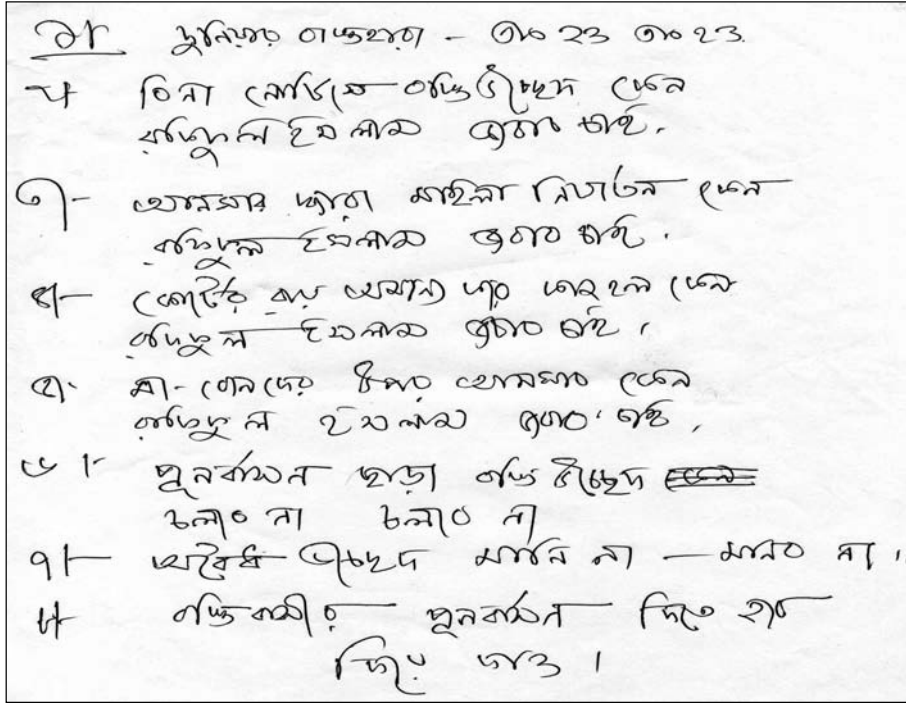 ১৷ দুনিয়ার বাস্তহারা - এক হও এক হও
২৷ বিনা নোটিসে বস্তি উচ্ছেদ কেন
রফিকুল ইসলাম জবাব চাই.
৩৷- আনসার দ্বারা মহিলা নির্যাতন কেন
রফিকুল ইসলাম জবাব চাই.
৪৷- কোর্টের রায় অমান্য করা হল কেন
রফিকুল ইসলাম জবাব চাই.
৫৷- মা-বোনদের উপর আনসার কেন
রফিকুল ইসলাম জবাব চাই.
৬৷- পূনর্বাসন ছাড়া বস্তি উচ্ছেদ
চলবে না চলবে না
৭৷- অবৈধ উচ্ছেদ মানি না - মানব না.
৮৷- বস্তিবাসীর পূনর্বাসন দিতে হবে
দিয়ে দাও ৷